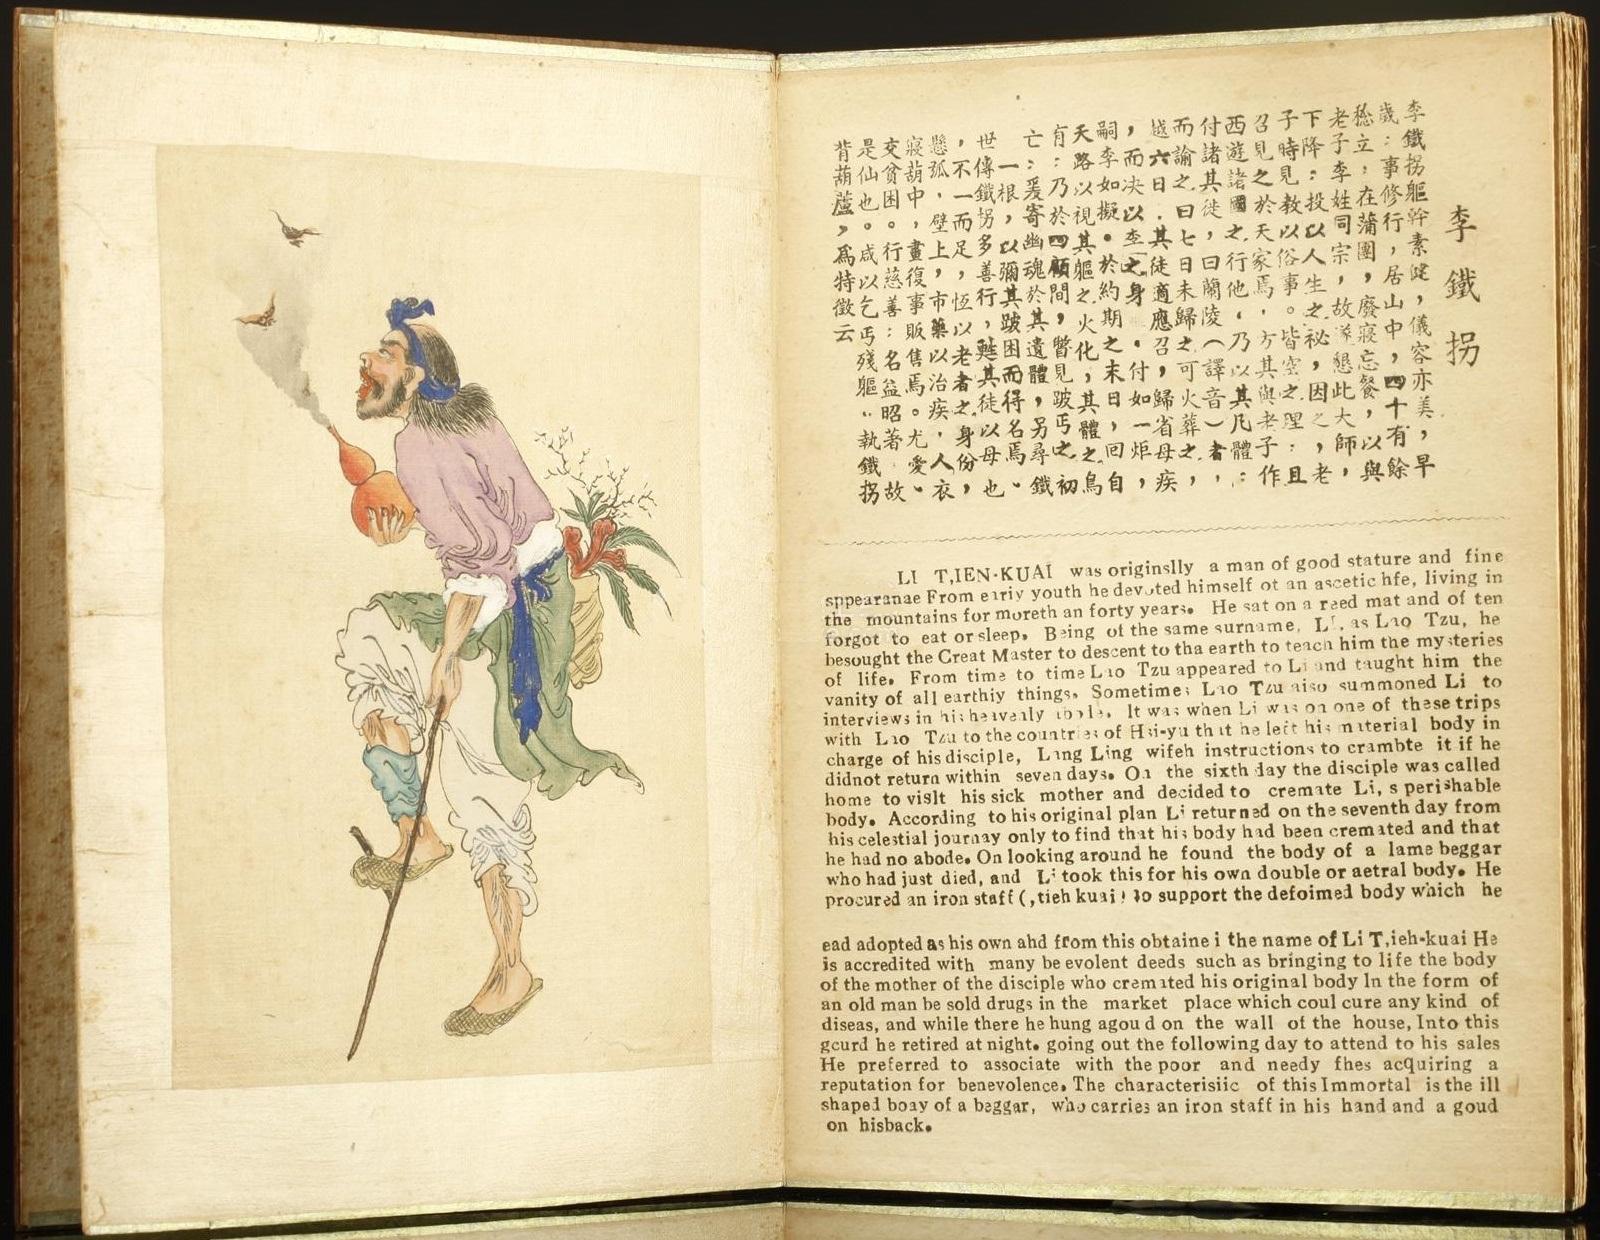 李鐵拐
李鐵拐軀幹素健,儀容亦美,早
歲:事修行,居山中,四十有餘
嵇立,在蒲團,廢寢忘餐,以與
老子李姓同宗,故遂懇此大師,
下降:投以人生之秘,因之,老
子時見教以俗事。皆空之理:且
召見之於天家焉.方其與老子作
西遊諸國之行他.乃以其凡體:
付諸其徒,曰蘭陵(譯音)者,
而諭之曰七日未歸之可火葬之,
越六日.其徒適應召,歸省母疾
,而决以之身.付如一炬,
嗣李如擬.於約期之末日,回自
天路以視其軀之火化,其體之烏
有:乃於四顧間,瞥見跛丐之初
亡:爰寄幽魂於其遺體,另尋鐵
一根,以彌其跛困而得名焉、
世傳鐵拐多善行,甦其徒以母也
,不一而足,恆以老者之身份,
懸弧,壁上,市藥以治疾,人衣
寢葫中,晝復事販售焉。尤愛、
交貧困。行慈善:名益昭著故
是仙也。咸以乞丐殘軀..執鐵拐
背葫蘆,爲特徵云
LI T,IEN-KUAI was originslly a man of good stature and fine
sppearanae From eariy youth he devoted himself ot an ascetic hfe, living in
the mountains for moreth an forty years. He sat on a reed mat and of ten
forgot to eat or sleep. Being of the same surname, Li, as Lao Tzu, he
besought the Great Master to descent to tha earth to teach him the mysteries
of life. From time to time Lao Tzu appeared to Li and taught him the
vanity of all earthiy things. Sometimes Lao Tzu aiso summoned Li to
interviews in his heavenly abole. It was when Li was on one of these trips
with Lao Tzu to the countries of Hsi-yu that he left his material body in
charge of his disciple, Lang Ling wifeh instructions to crambte it if he
didnot return within seven days. On the sixth day the disciple was called
home to vislt his sick mother and decided to cremate Li, s perishable
body. According to his original plan Li returned on the seventh day from
his celestial journay only to find that his body had been cremated and that
he had no abode. On looking around he found the body of a lame beggar
who had just died, and Li took this for his own double or aetral body. He
procured an iron staff (,tieh kuai) to support the defoimed body which he
ead adopted as his own ahd from this obtaine i the name of Li T,ieh-kuai He
is accredited with many be evolent deeds such as bringing to life the body
of the mother of the disciple who cremated his original body In the form of
an old man be sold drugs in the market place which coul cure any kind of
diseas, and while there he hung agou d on the wall of the house, Into this
gcurd he retired at night. going out the following day to attend to his sales
He preferred to associate with the poor and needy fhes acquiring a
reputation for benevolence. The characterisiic of this Immortal is the ill
shaped boay of a beggar, who carries an iron staff in his hand and a goud
on hisback.